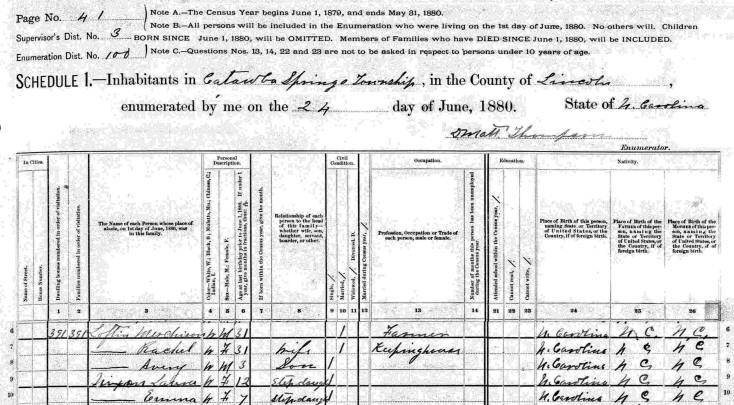 Page No. 41
Supervisor's Dist. No. 3
Enumeration Dist. No. 100
Note A.—The Census Year begins June 1, 1879, and ends May 31, 1880.
Note B.—All persons will be included in the Enumeration who were living on the 1st day of June, 1880. No others will. Children
BORN SINCE June 1, 1880, will be OMITTED. Members of Families who have DIED SINCE June 1, 1880, will be INCLUDED.
Note C.—Questions Nos. 13, 14, 22 and 23 are not to be asked in respect to persons under 10 years of age.
SCHEDULE 1.—Inhabitants in Catawba Springs Township, in the County of Lincoln,
enumerated by me on the 24 day of June, 1880. State of N. Carolina
Matt. Thompson
Enumerator.
In Cities.
Name of Street.
House Number.
Dwelling houses numbered in order of visitation.
Families numbered in order of visitation.
The Name of each Person whose place of abode, on 1st day of June, 1880, was in this family.
Personal Description.
Color—White, W.; Black, B.; Mulatto, Mu.; Chinese, C.; Indian, I.
Sex—Male, M.; Female, F.
Age at last birthday prior to June 1, 1880. If under 1 year, give months in fractions, thus:
If born within the Census year, give the month.
Relationship of each person to the head of this family—whether wife, son, daughter, servant, boarder, or other.
Civil Condition.
Single, /
Married, /
Widowed, / Divorced, D.
Married during Census year, /
Occupation.
Profession, Occupation or Trade of each person, male or female.
Number of months this person has been unemployed during the Census year.
Education.
Attended school within the Census year, /
Cannot read, /
Cannot write, /
Nativity.
Place of Birth of this person, naming State or Territory of United States, or the Country, if of foreign birth.
Place of Birth of the Father of this person, naming the State or Territory of United States, or the Country, if of foreign birth.
Place of Birth of the Mother of this person, naming the State or Territory of United States, or the Country, if of foreign birth.
1 2 3 4 5 6 7 8 9 10 11 12 13 14 21 22 23 24 25 26
6 391 391 Loftin W M 31 1 Farmer N. Carolina N C N C 6
7 — Rachel W F 31 Wife 1 Keeping house N. Carolina N C N C 7
8 — Avery W M 3 Son 1 N. Carolina N C N C 8
9 W F 12 Step daugt 1 N. Carolina N C N C 9
10 — Emma W F 7 Step daugt 1 N. Carolina N C N C 10